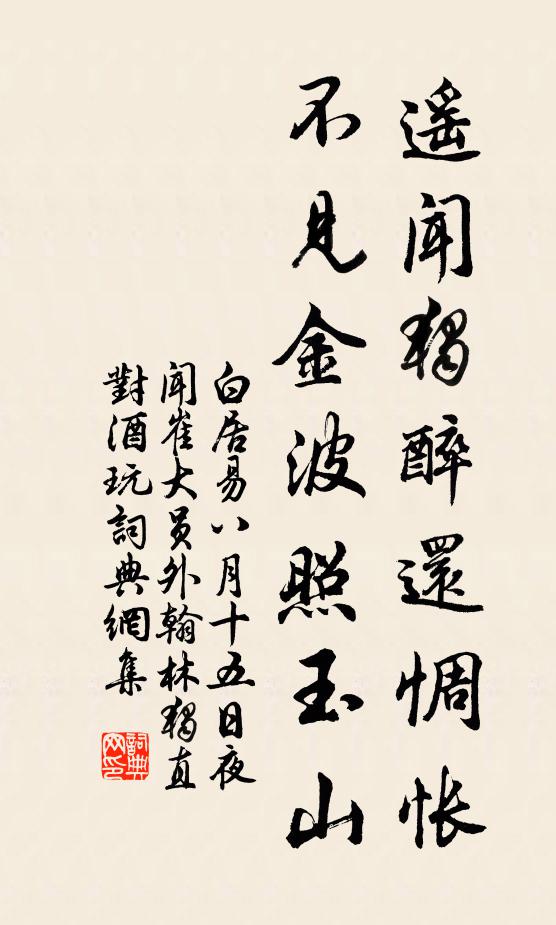 遥闻獨醉還惆怅
不見金波照玉山
白居易八月十五日夜
闻崔大员外翰林獨直
對酒玩詞典網集
詞典网印